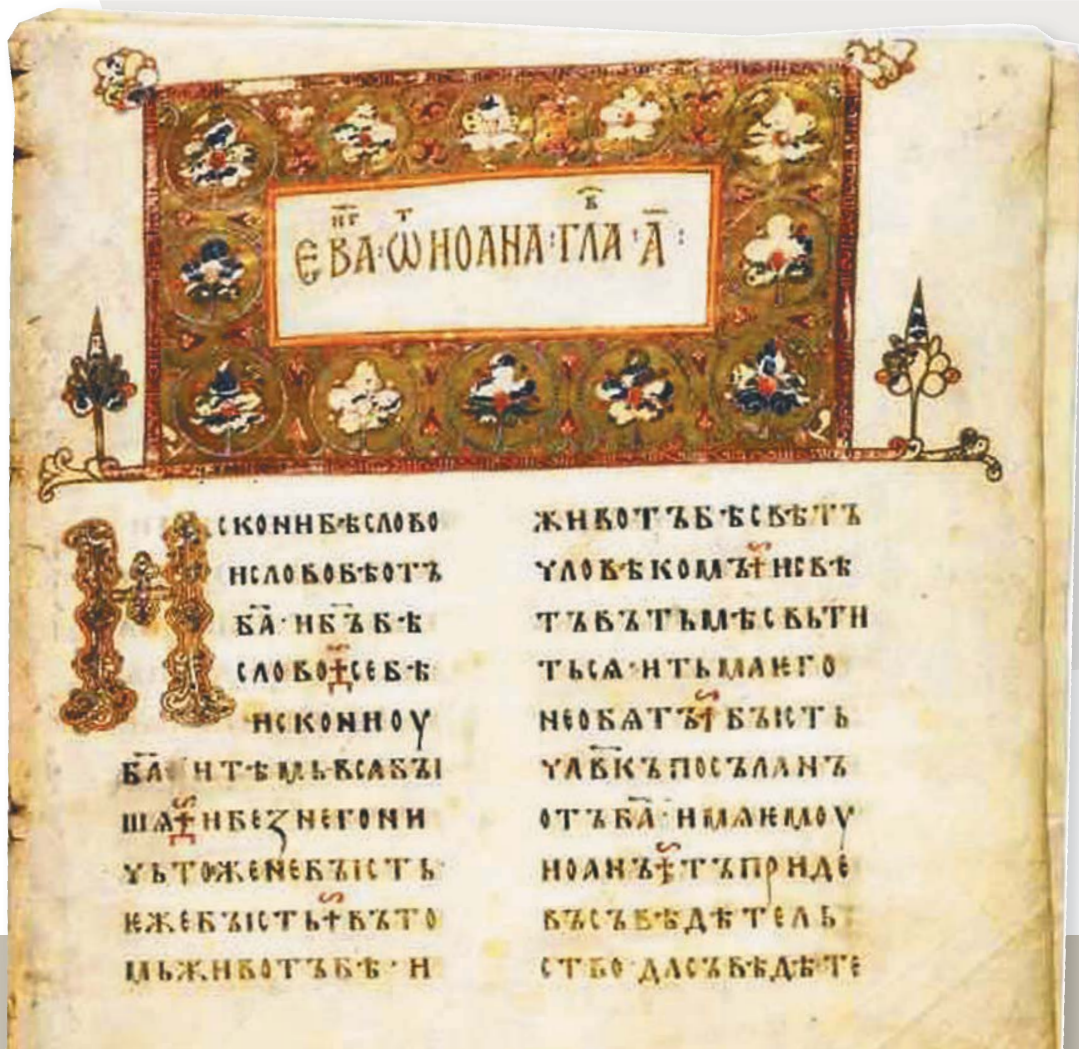 ЕВАНГ҃ ѾИОАНА: ГЛАВ А҃:
ИСКОНИБѢСЛОВО
ИСЛОВОБѢОТЪ
БА҃· ИБ҃ЪБѢ
СЛОВО СЕБѢ
ИСКОНИОУ
БА҃ ИТѢМЬВСꙖБЪІ
ШѦ ИБЕЗНЕГОНИ
ЧЬТОЖЕНЕБЪІСТЬ
ѤЖЕБЪІСТЬ ВЪТО
МЬЖИВОТЪБѢ· И
ЖИВОТЪБѢСВѢТЪ
ЧЛОВѢКОМЪ ИСВѢ
ТЪВЪТЬМѢСВЬТИ
ТЬСѦ· ИТЬМАѤГО
НЕОБѦТЪ БЪІСТЬ
ЧЛВ҃КЪПОСЪЛАНЪ
ОТЪБА҃· ИМѦѤМОУ
ИОАНЪ ТЪПРИДЕ
ВЪСЪВѢДѢТЕЛЬ
СТВО· ДАСЪВѢДѢТЕ